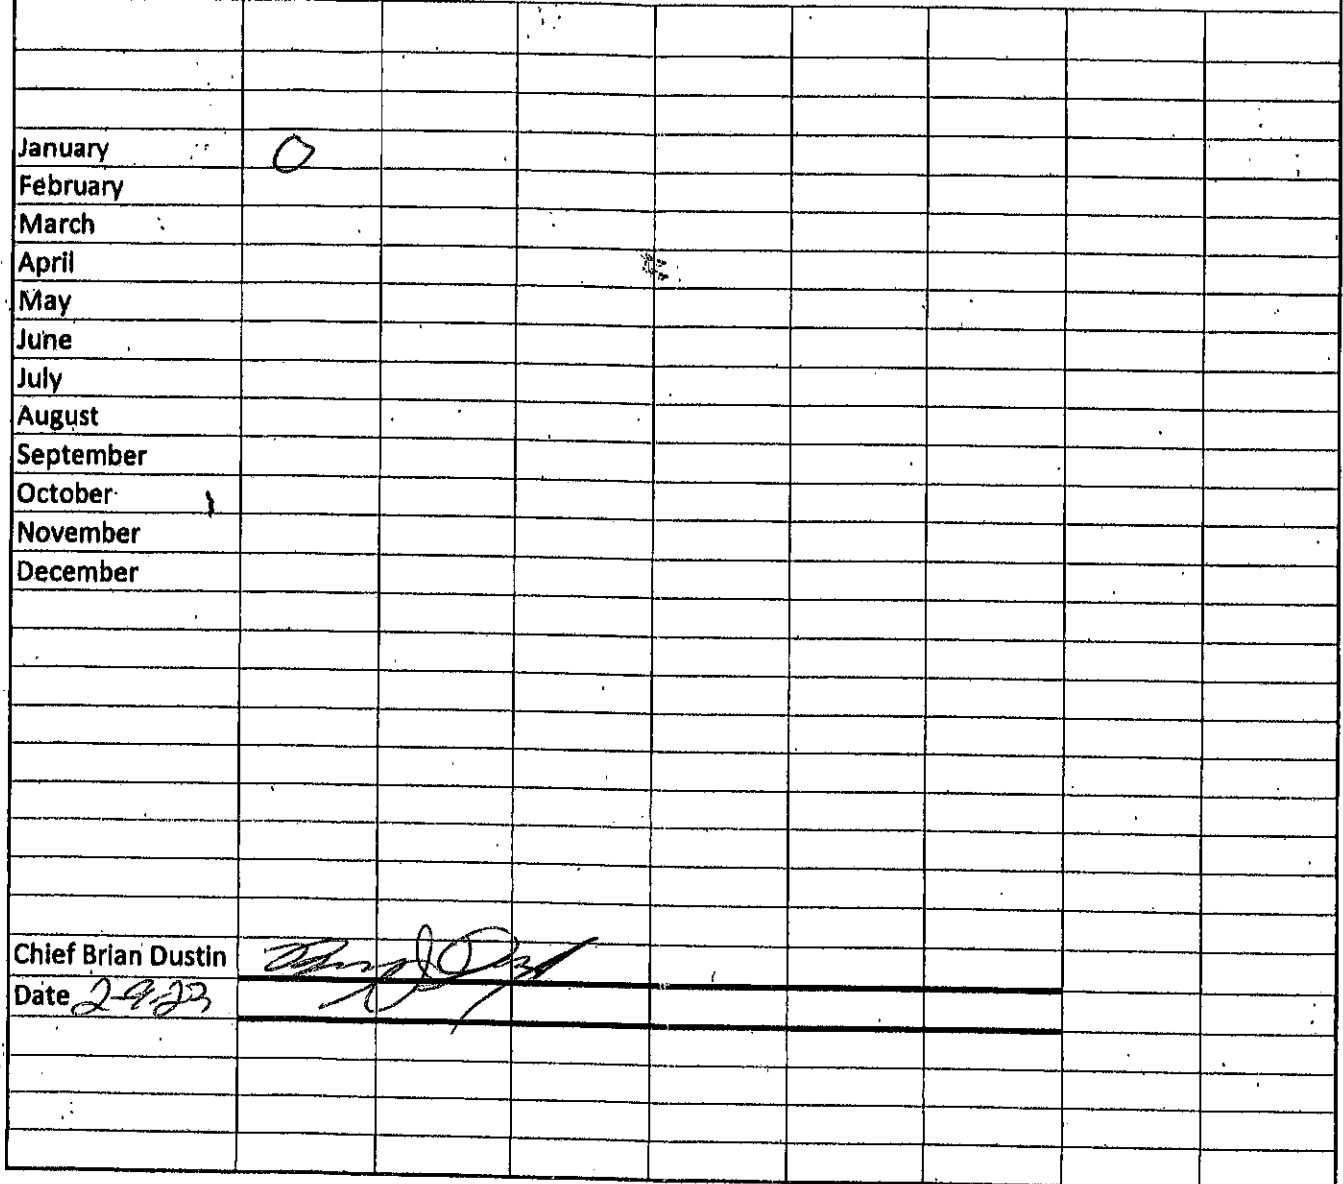 January 0
February
March
April
May
June
July
August
September
October
November
December
Chief Brian Dustin
Date 2-9-23